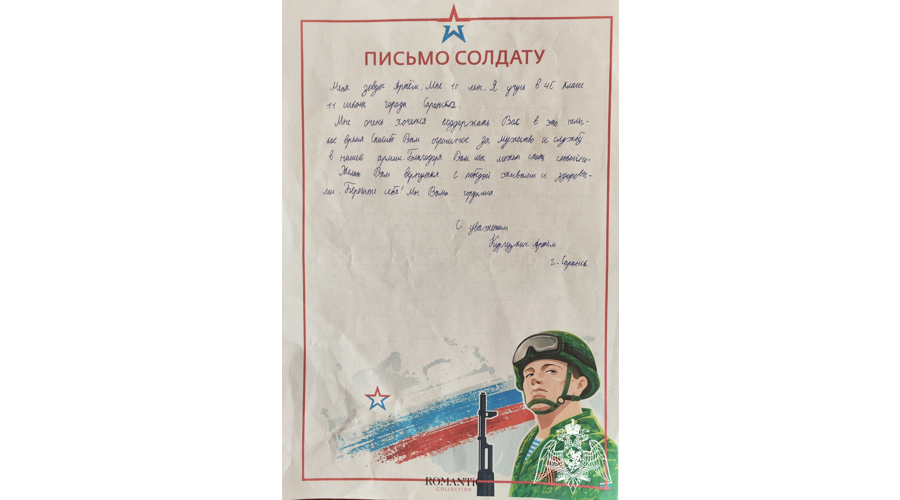 ПИСЬМО СОЛДАТУ
Меня зовут Артём. Мне 10 лет. Я учусь в 4Б классе
11 школы города Саранска.
Мне очень хочется поддержать Вас в это нелег-
кое время Спасибо Вам огромное за мужество и службу
в нашей армии. Благодаря Вам мы можем спать спокойно.
Желаю Вам вернуться с победой живыми и здоровы-
ми. Берегите себя! Мы Вами гордимся
С уважением
Артём
г. Саранск
ROMANTIC
COLLECTION